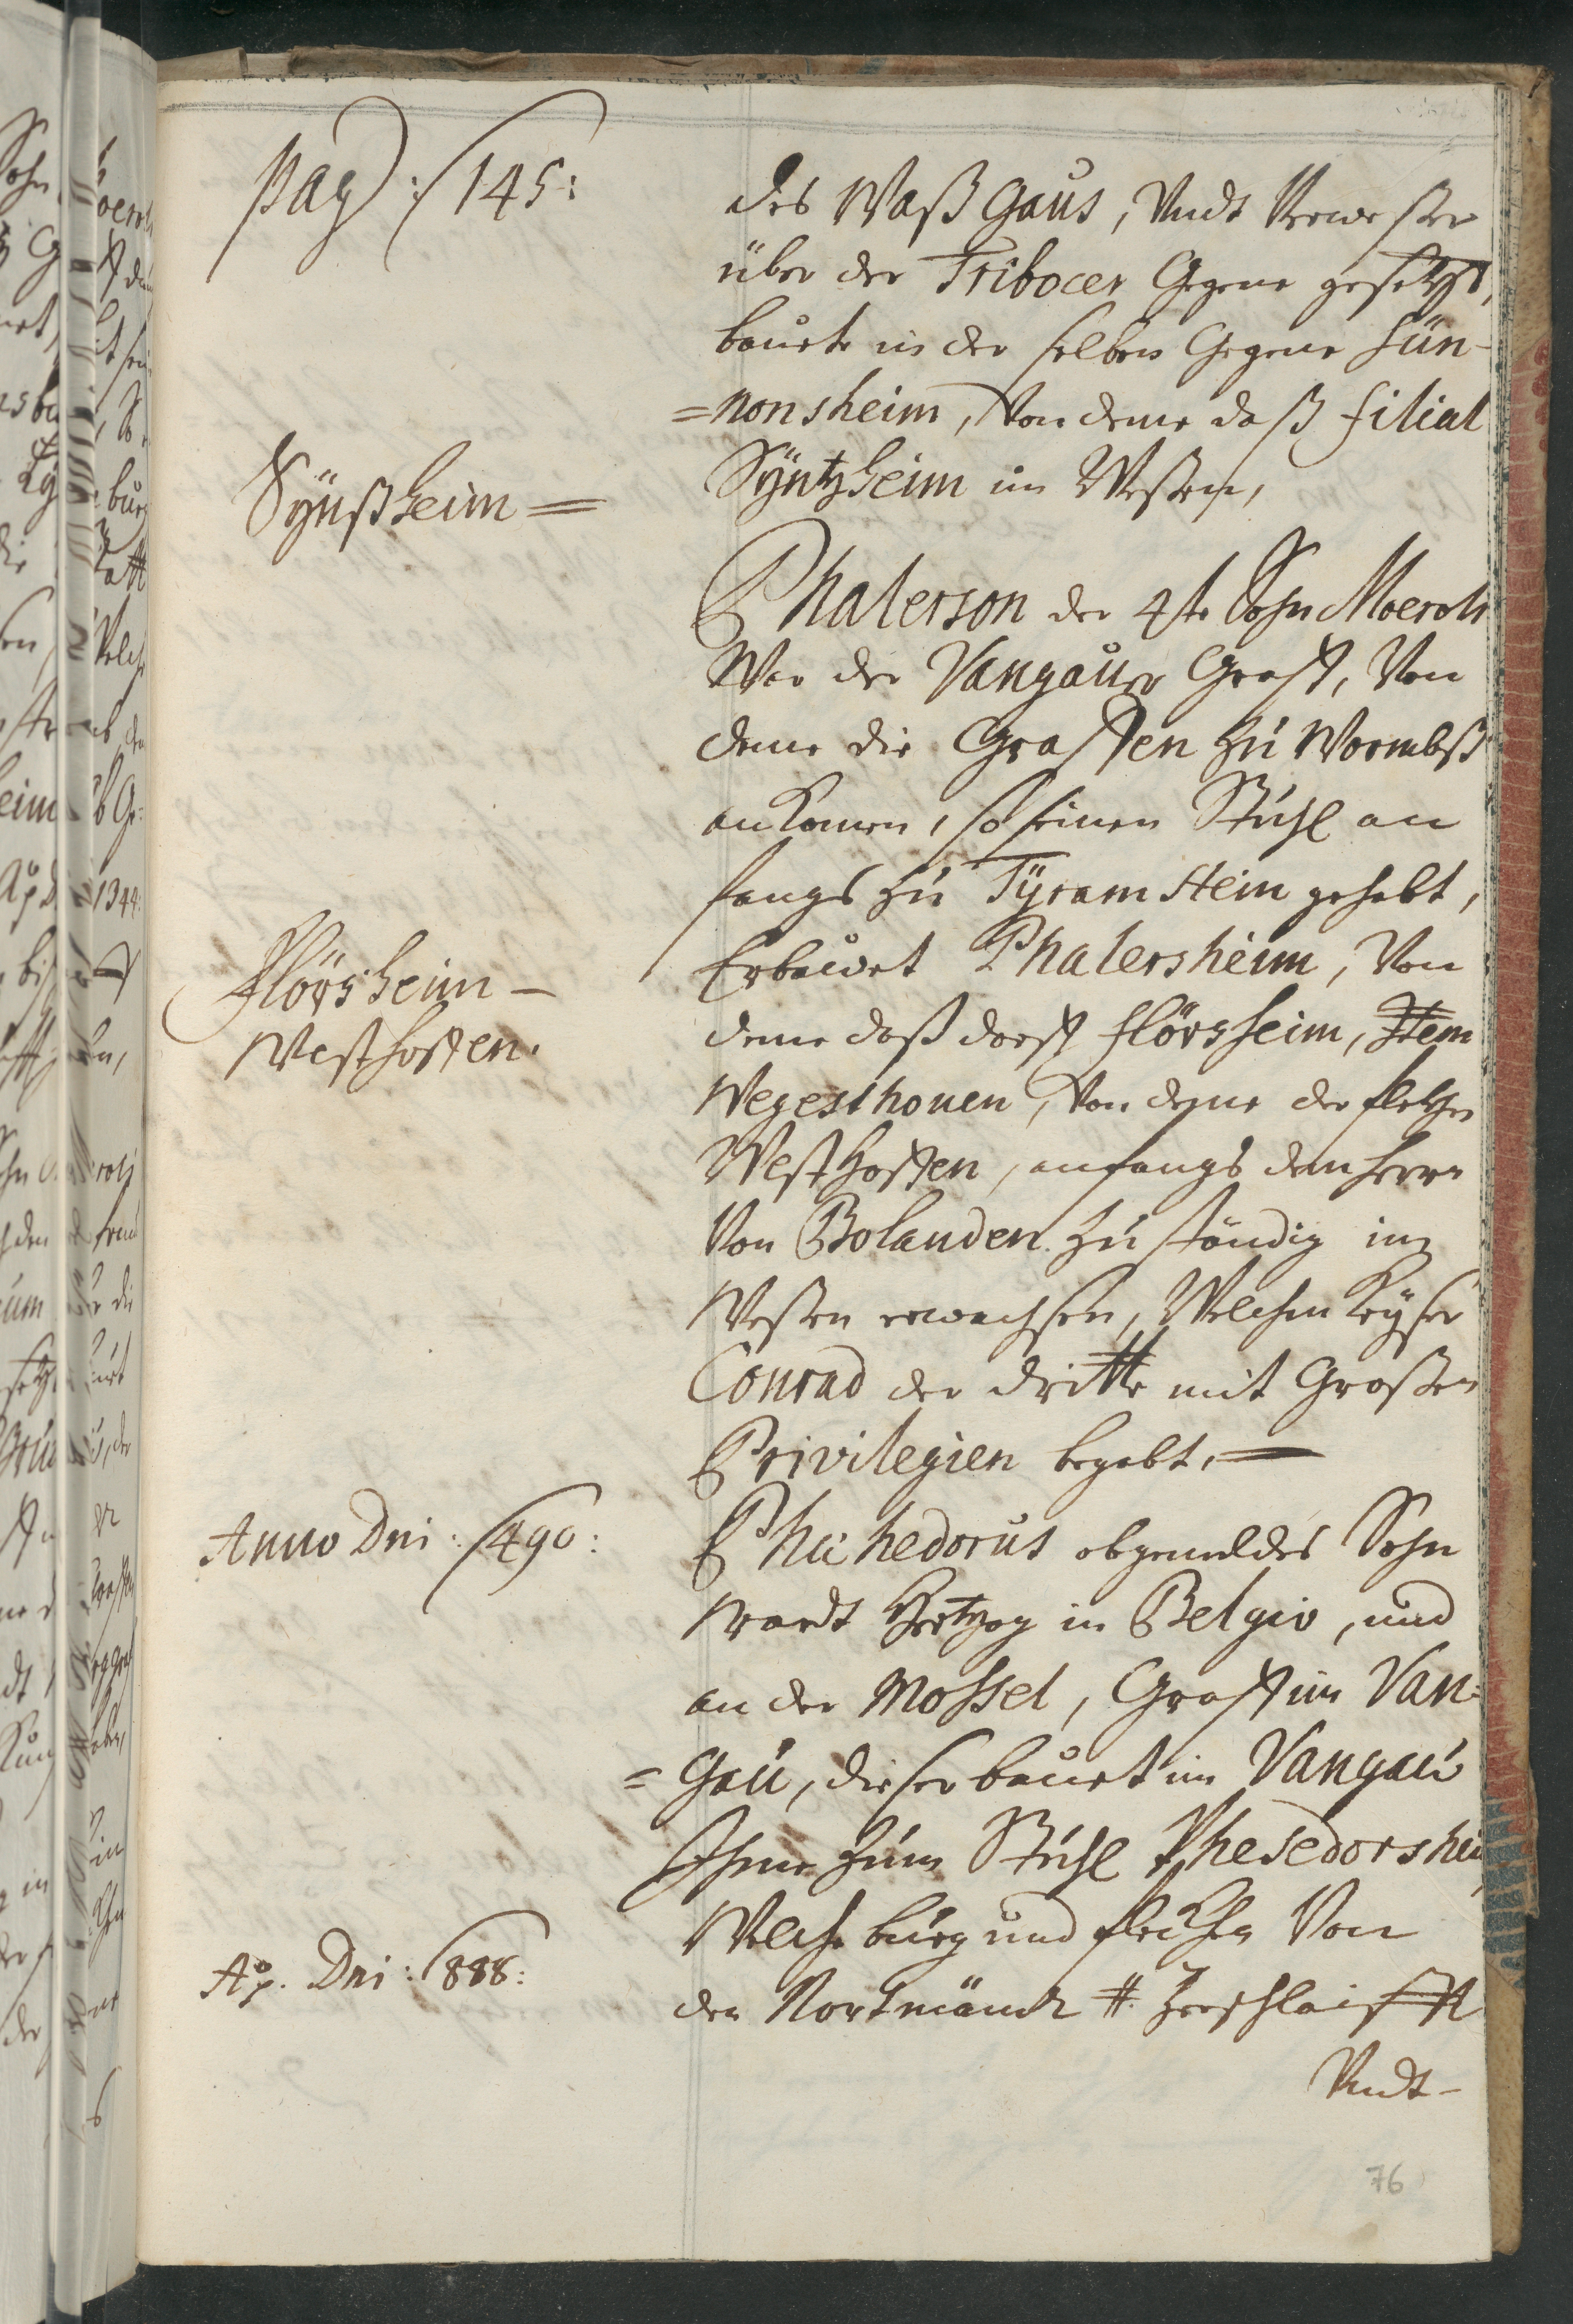 pag: 145:
des Waßgaus, Vndt Verweßer
über der Tribocer Gegene gesetzt,
bauete in der selben Gegene Sün-
=nonsheim, Von deme daß filial
Syntzheim im Weßen,
Synßheim =
Phalerson der 4te Sohn Moeroli
War der Vangauer Graff, Von
deme die Graffen zu Wormbß
ankomen, so seinen Stuhl an
fangs zu Tyramstein gehabt,
Erbauet Phalersheim, Von
deme daß dorff flörsheim, Item
Flörsheim -
Westhoffen.
Wegesthouen, Von deme der flecken
Westhoffen, anfangs den herrn
Von Bolanden zu ständig im
Weßen erwachsen, Welchen Keyser
Conrad der dritte mit Großen
Privilegien begabt,
Anno Dni: 490:
Phichedorus obgemeldes Sohn
Wardt Hertzog in Belgio, und
an der Mossel, Graff im Van=
=Gau, dieser bauet im Vangau
Ihme zum Stuhl Phesedorshei
Welche burg und flecken Von
Ao. Dni: 888:
den Nortmänn #. Zerschlaifft
Vndt-
76